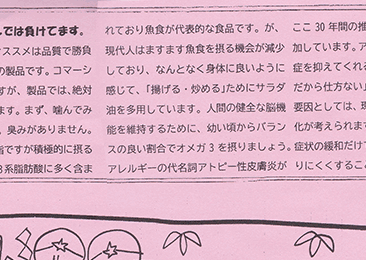 しでは負けてます。
ススメは品質で勝負
の製品です。コマーシ
が、製品では、絶対
ます。まず、噛んでみ
、臭みがありません。
脂ですが積極的に摂る
3系脂肪酸に多く含ま
れており魚食が代表的な食品です。が、
現代人はますます魚食を摂る機会が減少
しており、なんとなく身体に良いように
感じて、「揚げる・炒める」ためにサラダ
油を多用しています。人間の健全な脳機
能を維持するために、幼い頃からバラン
スの良い割合でオメガ3を摂りましょう。
アレルギーの代名詞アトピー性皮膚炎が
ここ30年間の推
加しています。ア
症を抑えてくれる
だから仕方ない」
要因としては、現
化が考えられます
症状の緩和だけで
りにくくするこ